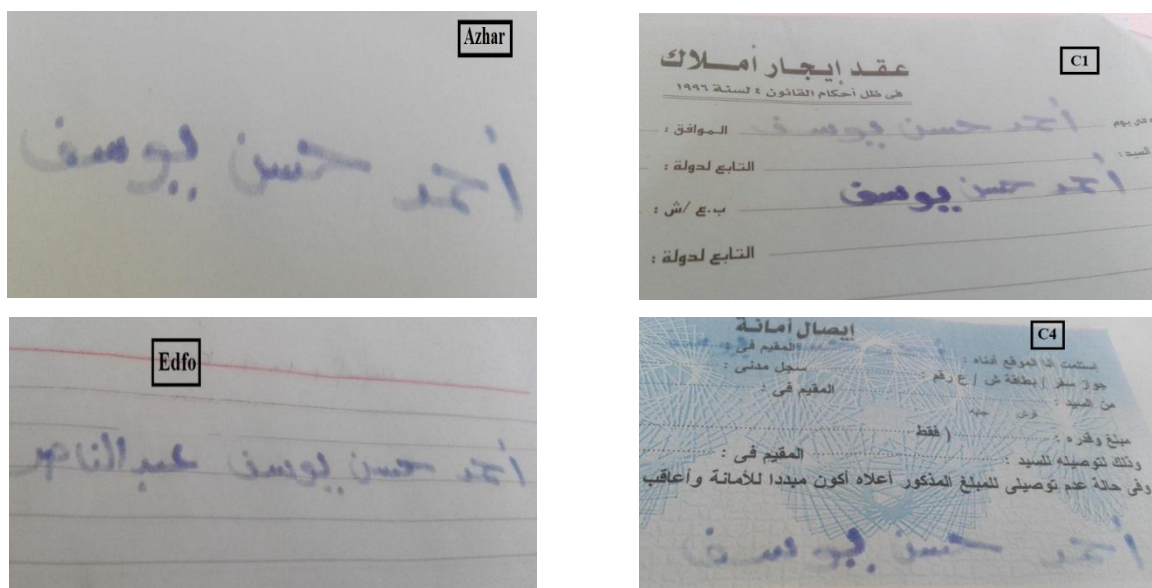 Azhar
أحمد حسن يوسف
C1
عقد إيجار أملاك
فى ظل أحكام القانون ٤ لسنة ١٩٩٦
أحمد حسن يوسف الموافق :
السيد : التابع لدولة :
أحمد حسن يوسف ب.ع /ش :
التابع لدولة :
Edfo
أحمد حسن يوسف عبد الناصر
C4
إيصال أمانة
إستلمت أنا الموقع أدناه : المقيم فى :
جواز سفر / بطاقة ش / ع رقم : سجل مدنى :
من السيد : المقيم فى :
قرش جنيه
مبلغ وقدره : ( فقط
وذلك لتوصيله للسيد : المقيم فى :
وفى حالة عدم توصيلى للمبلغ المذكور أعلاه أكون مبددا للأمانة وأعاقب
أحمد حسن يوسف